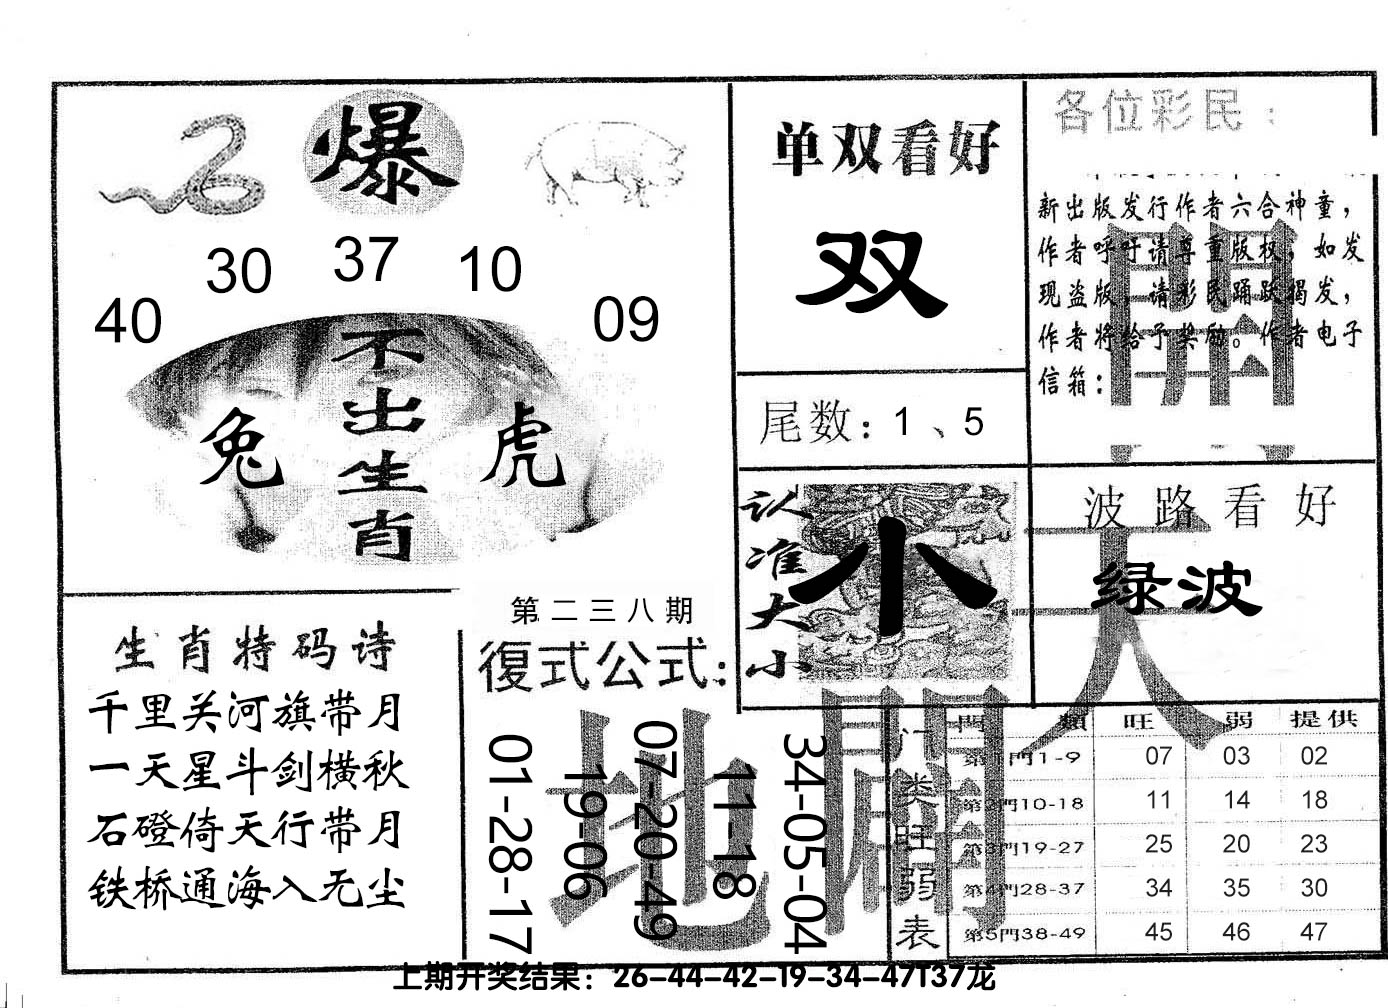 爆
40 30 37 10 09
不出生肖
兔 虎
单双看好
双
尾数：1、5
各位彩民：
新出版发行作者六合神童，
作者呼吁请尊重版权，如发
现盗版，请彩民踊跃揭发，
作者将给予奖励。作者电子
信箱：
開
认准大小
小
波路看好
绿波
天
生肖特码诗
千里关河旗带月
一天星斗剑横秋
石磴倚天行带月
铁桥通海入无尘
第二三八期
復式公式：
01-28-17
19-06
07-20-49
11-18
34-05-04
地 開
门类旺弱表
門類 旺 弱 提供
第1門1-9 07 03 02
第2門10-18 11 14 18
第3門19-27 25 20 23
第4門28-37 34 35 30
第5門38-49 45 46 47
上期开奖结果：26-44-42-19-34-47T37龙